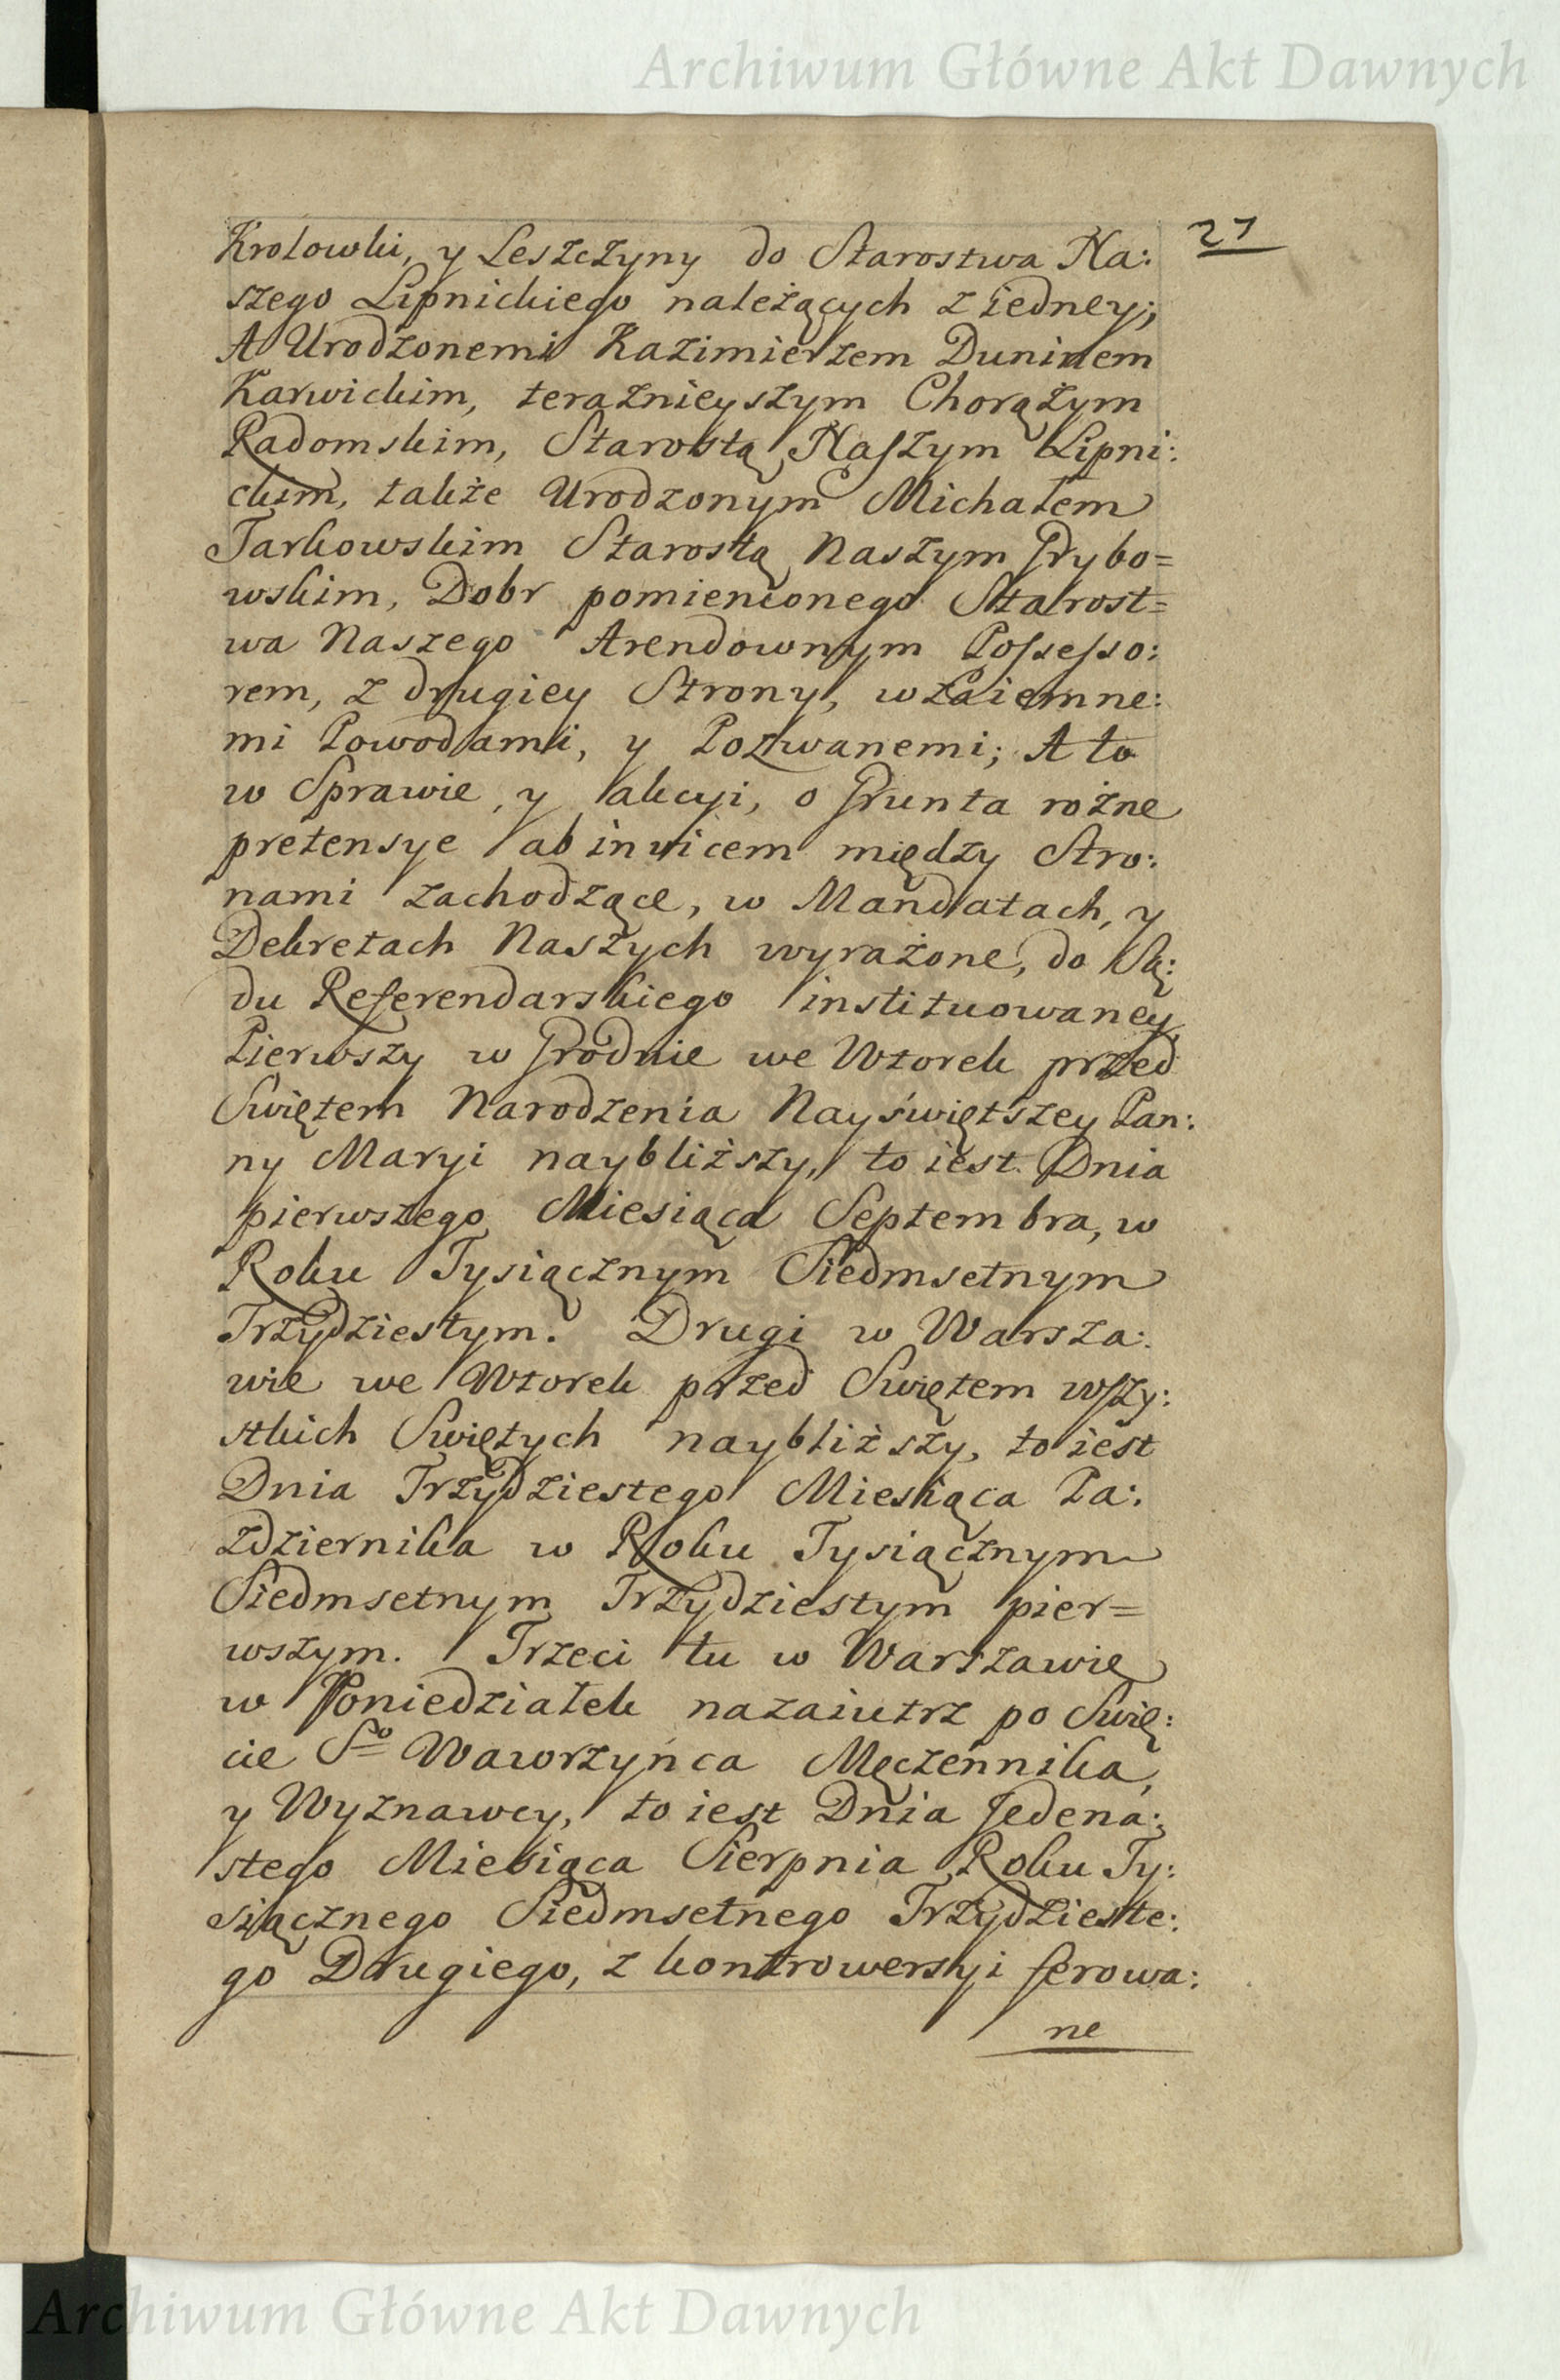 Archiwum Główne Akt Dawnych
21
Krolowki, y Leszczyny do Starostwa Na:
szego Lipnickiego należących z iedney;
A Urodzonemi Kazimierzem Duninem
Karwickim, teraznieyszym Chorążym
Radomskim, Starostą Naszym Lipni:
ckim, także Urodzonym Michałem
Tarkowskim Starostą Naszym Grybo=
wskim, Dobr pomienionego Starost=
wa Naszego Arendownym Possesso:
rem, z drugiey Strony, wzaiemne:
mi Powodami, y Pozwanemi; A to
w Sprawie, y akcyi, o Grunta rożne
pretensye ab invicem między Stro:
nami zachodzące, w Mandatach, y
Dekretach Naszych wyrażone, do Są:
du Referendarskiego instituowaney
Pierwszy w Grodnie we Wtorek przed
Swiętem Narodzenia Nayświętszey Pan:
ny Maryi naybliższy, to iest Dnia
pierwszego Miesiąca Septembra, w
Roku Tysiącznym Siedmsetnym
Trzydziestym. Drugi w Warsza:
wie we Wtorek przed Swiętem wszy:
stkich Swiętych naybliższy, to iest
Dnia Trzydziestego Miesiąca Pa:
zdziernika w Roku Tysiącznym
Siedmsetnym Trzydziestym pier=
wszym. Trzeci tu w Warszawie
w Poniedziałek nazaiutrz po Swię:
cie S<sup>o</sup> Wawrzyńca Męczennika,
y Wyznawcy, to iest Dnia Jedena:
stego Miesiąca Sierpnia Roku Ty:
siącznego Siedmsetnego Trzydzieste:
go Drugiego, z kontrowersyi ferowa:
ne
Archiwum Główne Akt Dawnych